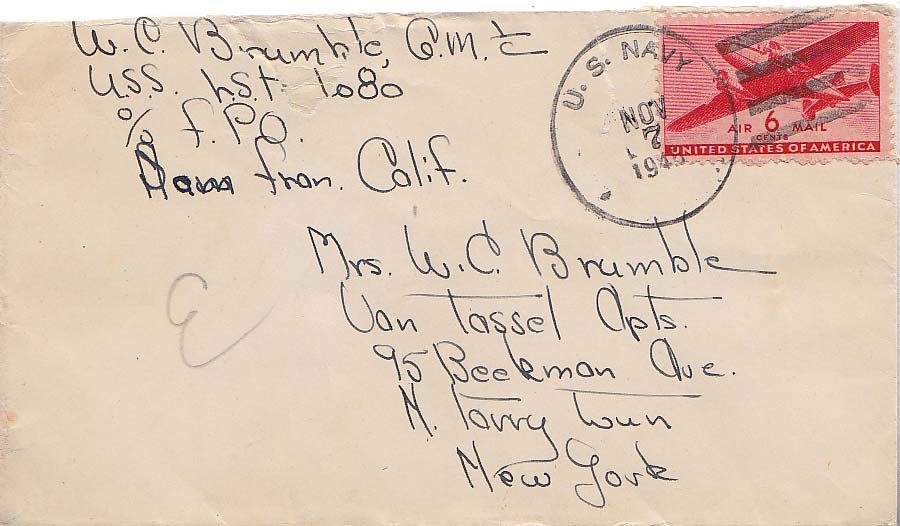 W. C. Brumble, G.M. 2/c
U.S.S. L.S.T. 1080
c/o F.P.O.
San Fran. Calif.
U. S. NAVY
NOV
7
AIR 6 MAIL
CENTS
UNITED STATES OF AMERICA
Mrs. W. C. Brumble
Van Tassel Apts.
95 Beekman Ave.
N. Tarry Town
New York